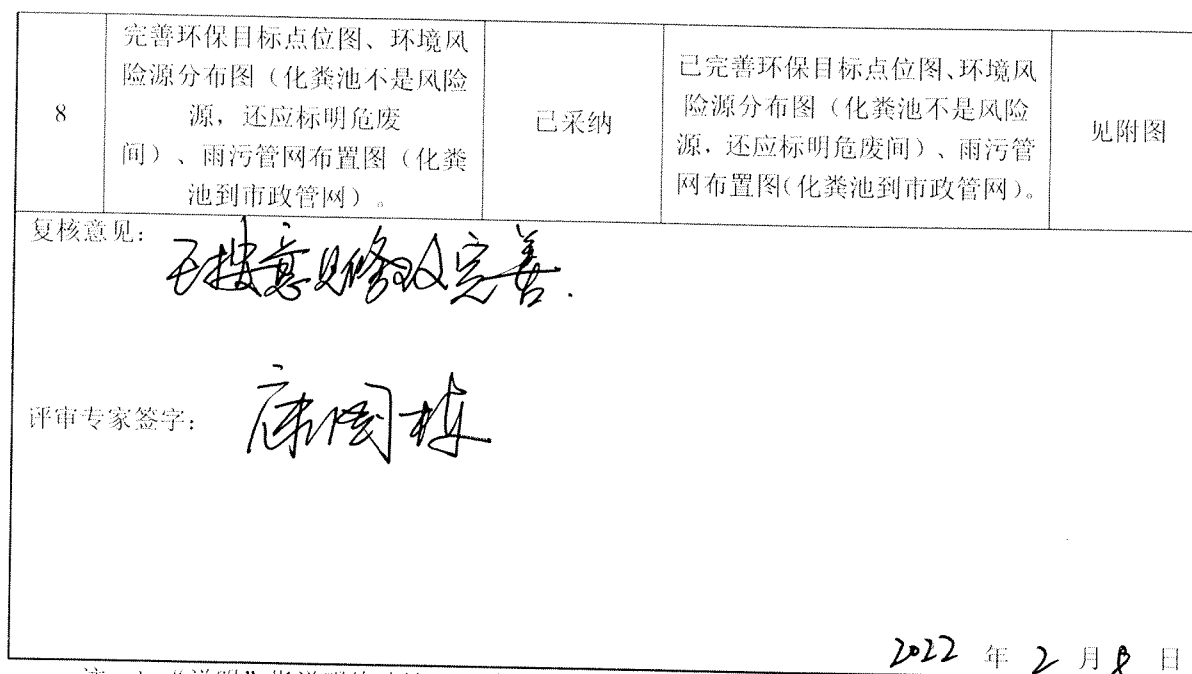 8
完善环保目标点位图、环境风
险源分布图（化粪池不是风险
源，还应标明危废
间）、雨污管网布置图（化粪
池到市政管网）。
已采纳
已完善环保目标点位图、环境风
险源分布图（化粪池不是风险
源，还应标明危废间）、雨污管
网布置图(化粪池到市政管网)。
见附图
复核意见：
已按意见修改完善.
评审专家签字：
2022 年 2 月 8 日